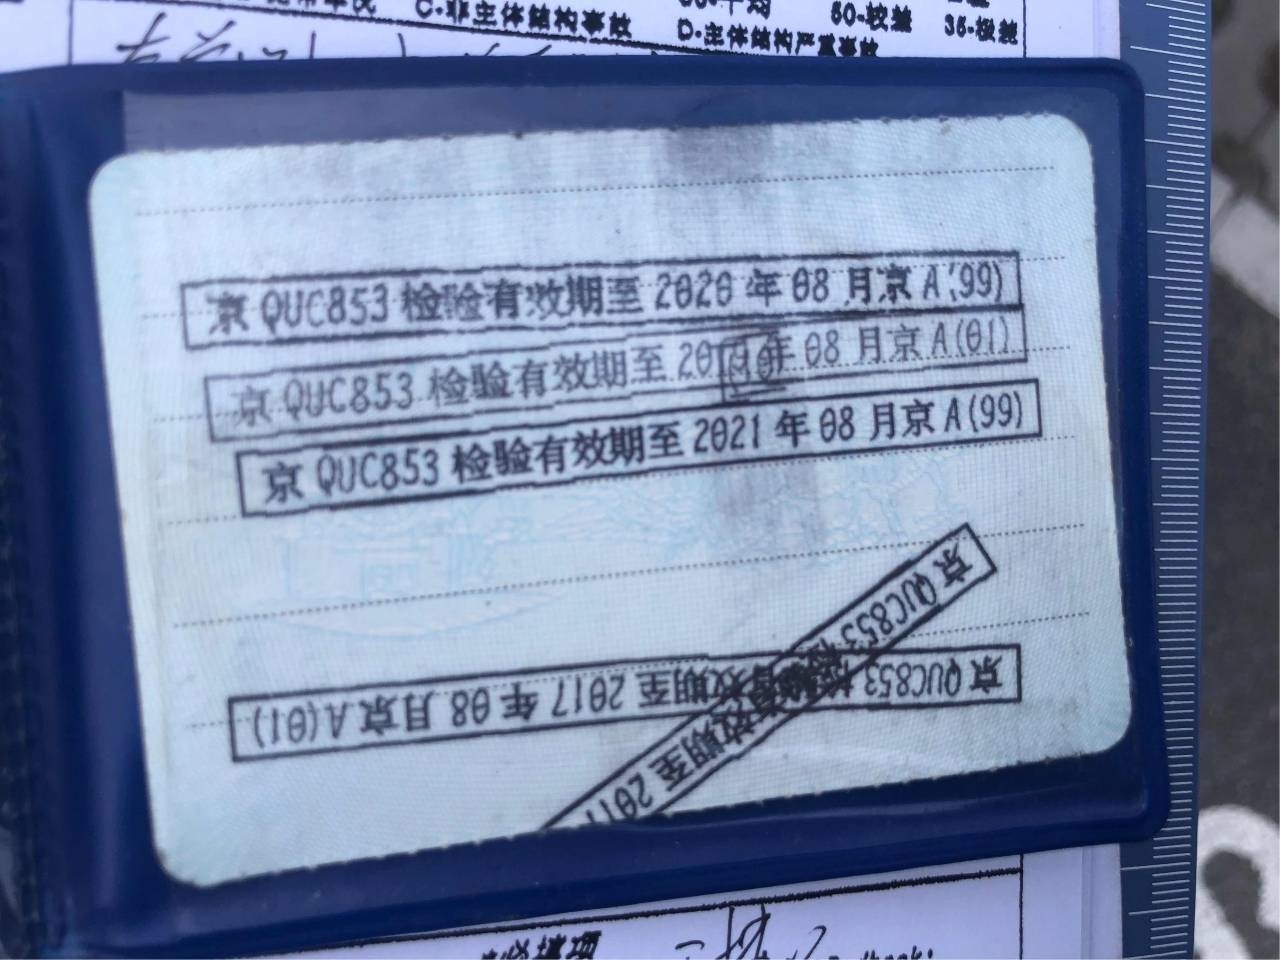 C-非主体结构事故
D-主体结构严重事故
50-较差
35-极差
京 QUC853 检验有效期至 2020 年 08 月京 A(99)
京 QUC853 检验有效期至 20 年 08 月京 A(01)
京 QUC853 检验有效期至 2021 年 08 月京 A(99)
京 QUC853 检验有效期至 201
京 QUC853 检验有效期至 2017 年 08 月京 A(01)